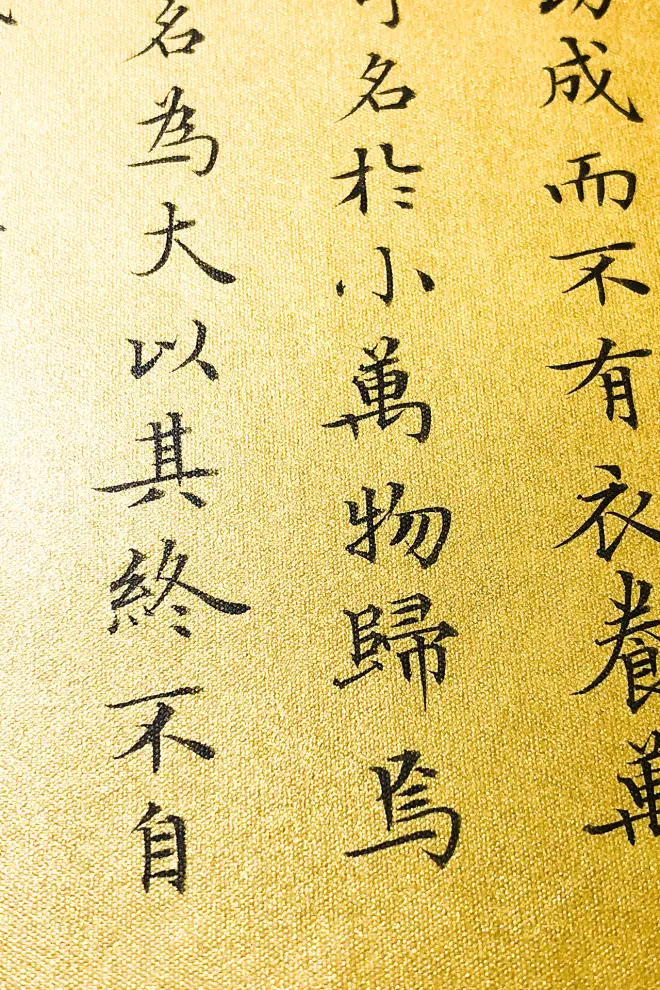 功成而不有衣養萬
名於小萬物歸焉
名為大以其終不自